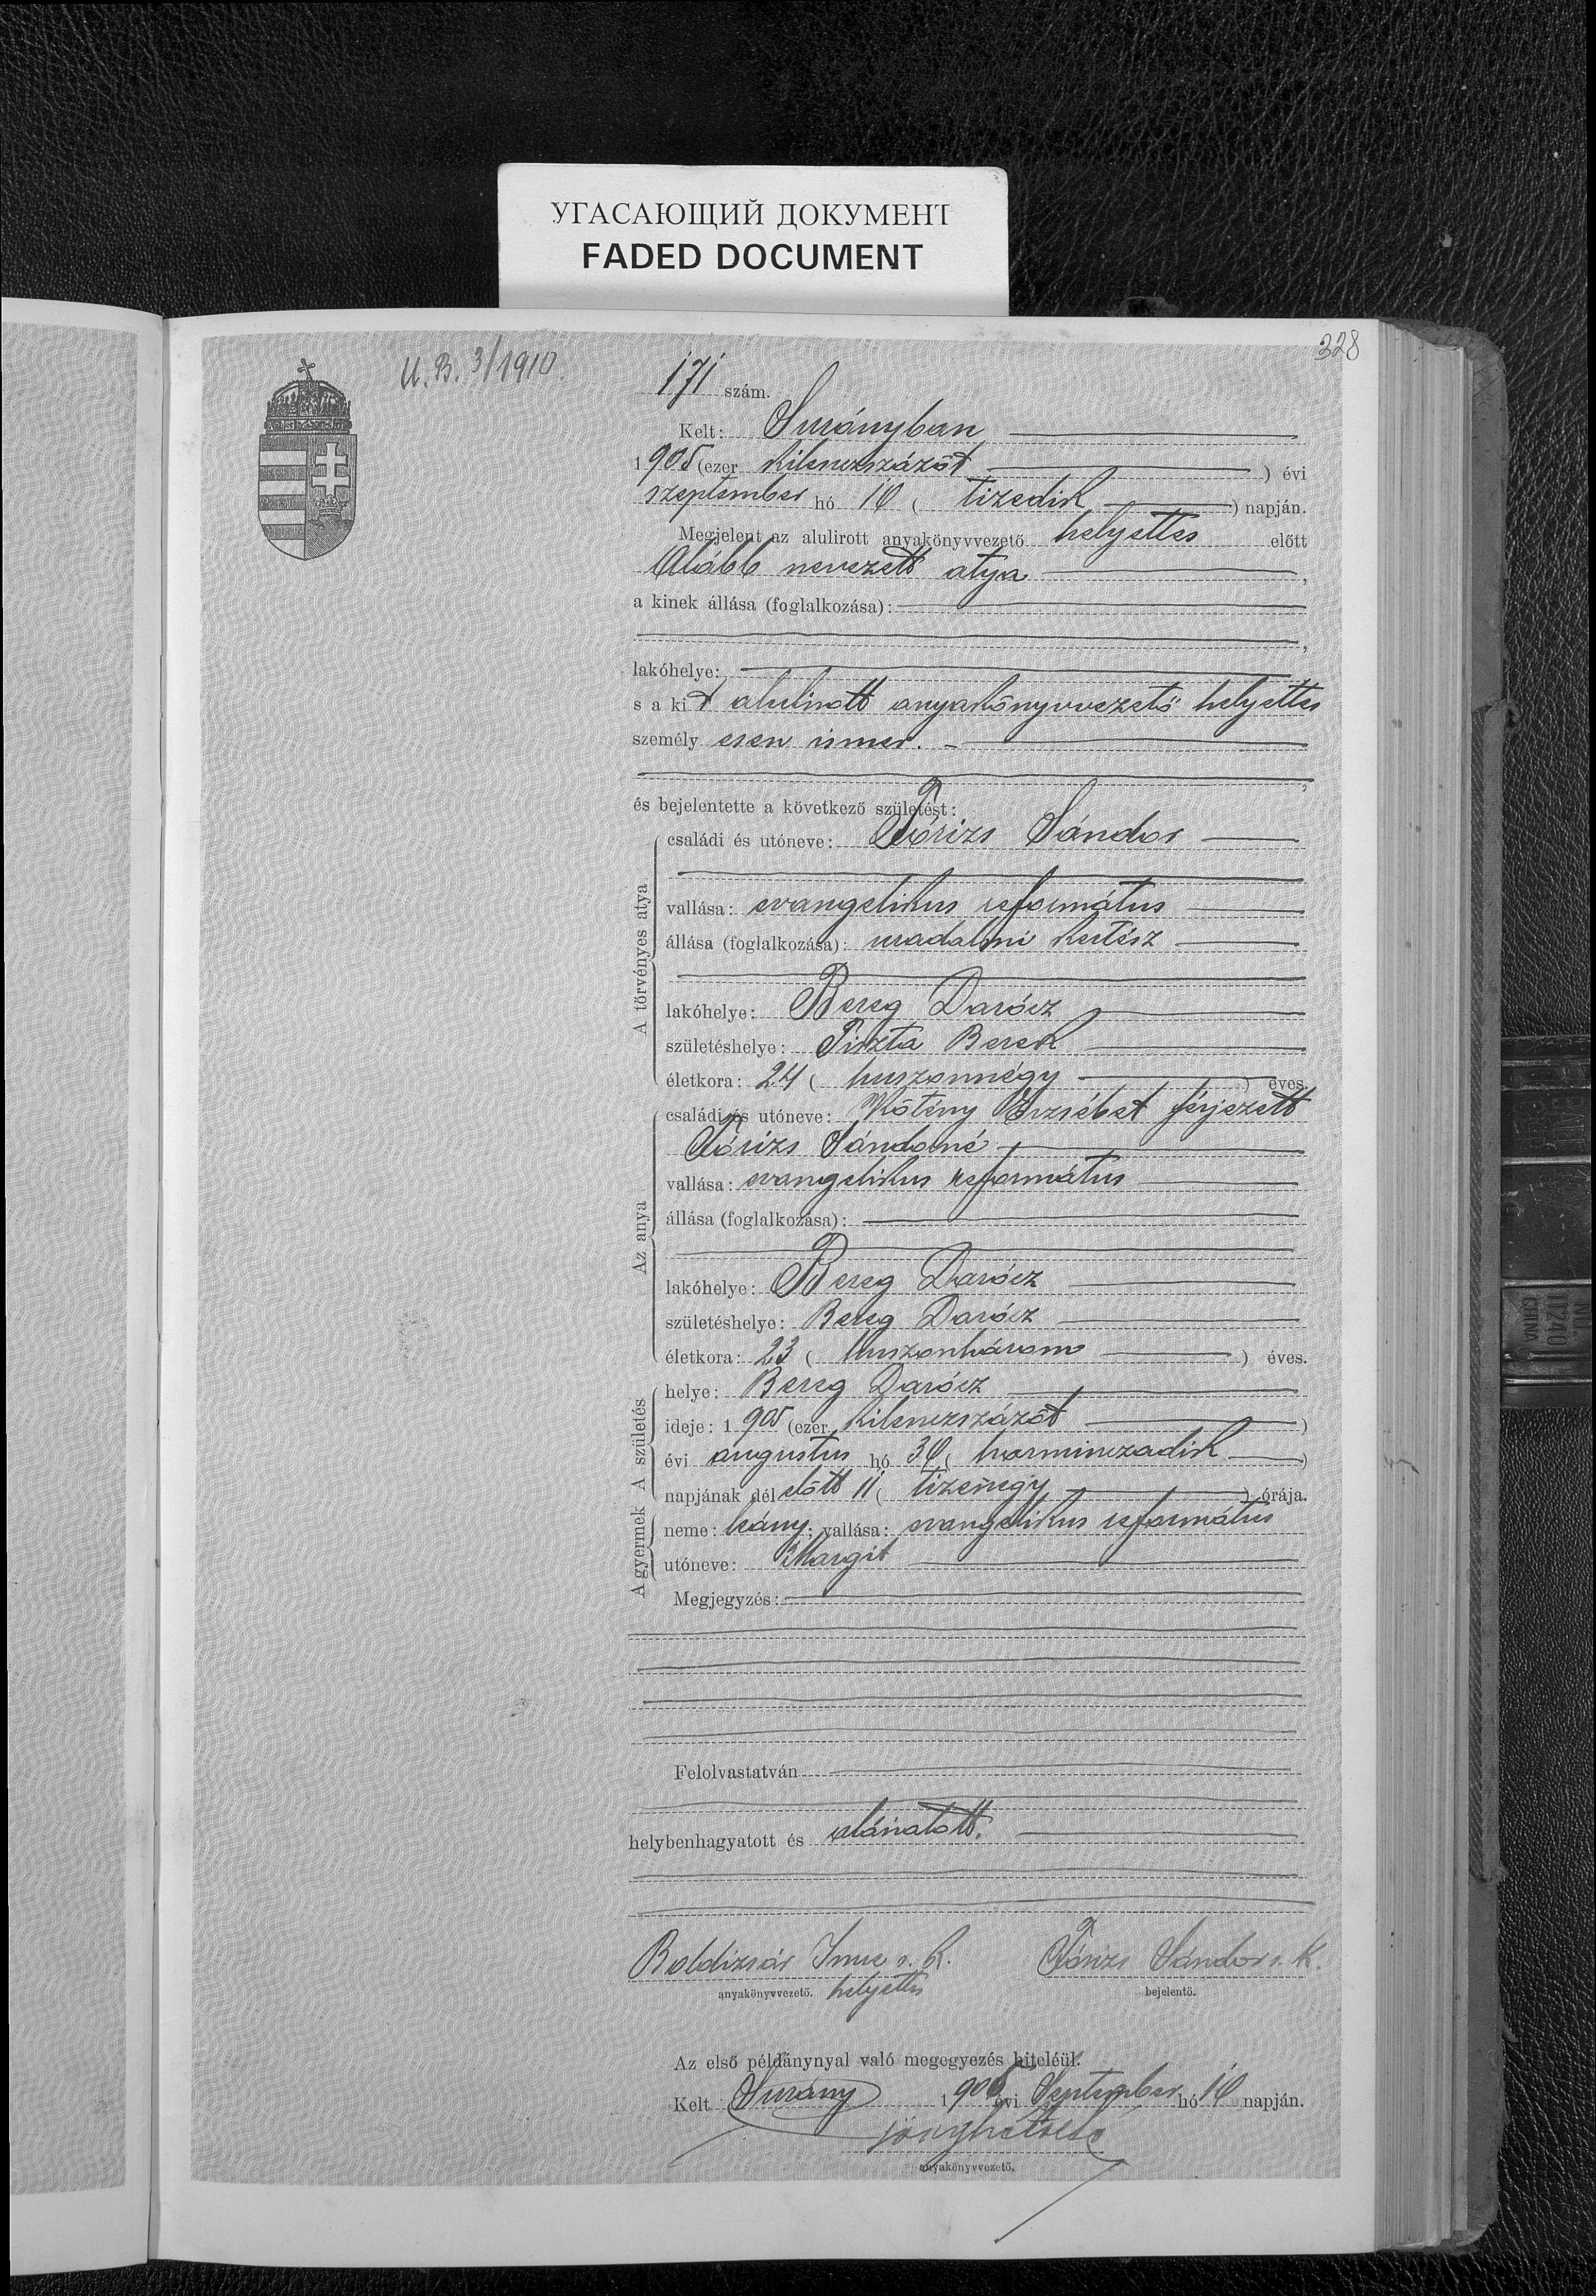 УГАСАЮЩИЙ ДОКУМЕНТ
FADED DOCUMENT
328
U. B. 3/1910.
171 szám.
Kelt: Surányban
1905 (ezer kilenczszázöt) évi
szeptember hó 10 (tizedik) napján.
Megjelent az alulirott anyakönyvvezető helyettes előtt
Alább nevezett atya,
a kinek állása (foglalkozása):
lakóhelye:
s a kit alulirott anyakönyvvezető helyettes
személyesen ismer.
és bejelentette a következő születést:
A törvényes atya
családi és utóneve: Tőrizs Sándor
vallása: evangelikus református
állása (foglalkozása): uradalmi kertész
lakóhelye: Bereg Darócz
születéshelye: Tiszta Berek
életkora: 24 (huszonnégy) éves.
Az anya
családi és utóneve: Kötény Erzsébet férjezett
Tőrizs Sándorné
vallása: evangelikus református
állása (foglalkozása):
lakóhelye: Bereg Darócz
születéshelye: Bereg Darócz
életkora: 23 (huszonhárom) éves.
A születés
helye: Bereg Darócz
ideje: 1905 (ezer kilenczszázöt)
évi augustus hó 30 (harminczadik)
napjának délelőtt 11 (tizenegy) órája.
A gyermek
neme: leány; vallása: evangelikus református
utóneve: Margit
Megjegyzés:
Felolvastatván
helybenhagyatott és aláiratott.
Boldizsár Imre s. k. Tőrizs Sándor s. k.
anyakönyvvezető. helyettes bejelentő.
Az első példánynyal való megegyezés hiteléül.
Kelt Surány 1905 évi September hó 10 napján.
anyakönyvvezető.
CHINA